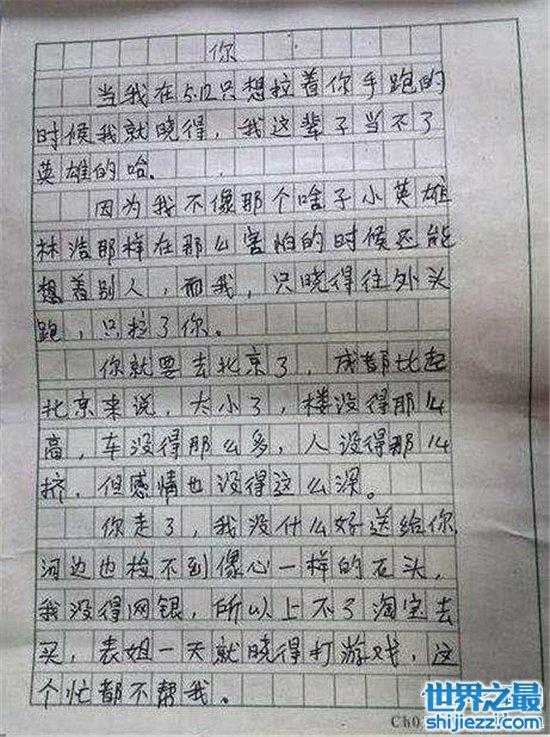 你
当我在5.12只想拉着你手跑的
时候我就晓得，我这辈子当不了
英雄的哈。
因为我不像那个啥子小英雄
林浩那样在那么害怕的时候还能
想着别人，而我，只晓得往外头
跑，只拉了你。
你就要去北京了，成都比起
北京来说，太小了，楼没得那么
高，车没得那么多，人没得那么
挤，但感情也没得这么深。
你走了，我没什么好送给你，
河边也捡不到像心一样的石头，
我没得网银，所以上不了淘宝去
买，表姐一天就晓得打游戏，这
个忙都不帮我。
世界之最
shijiezz.com